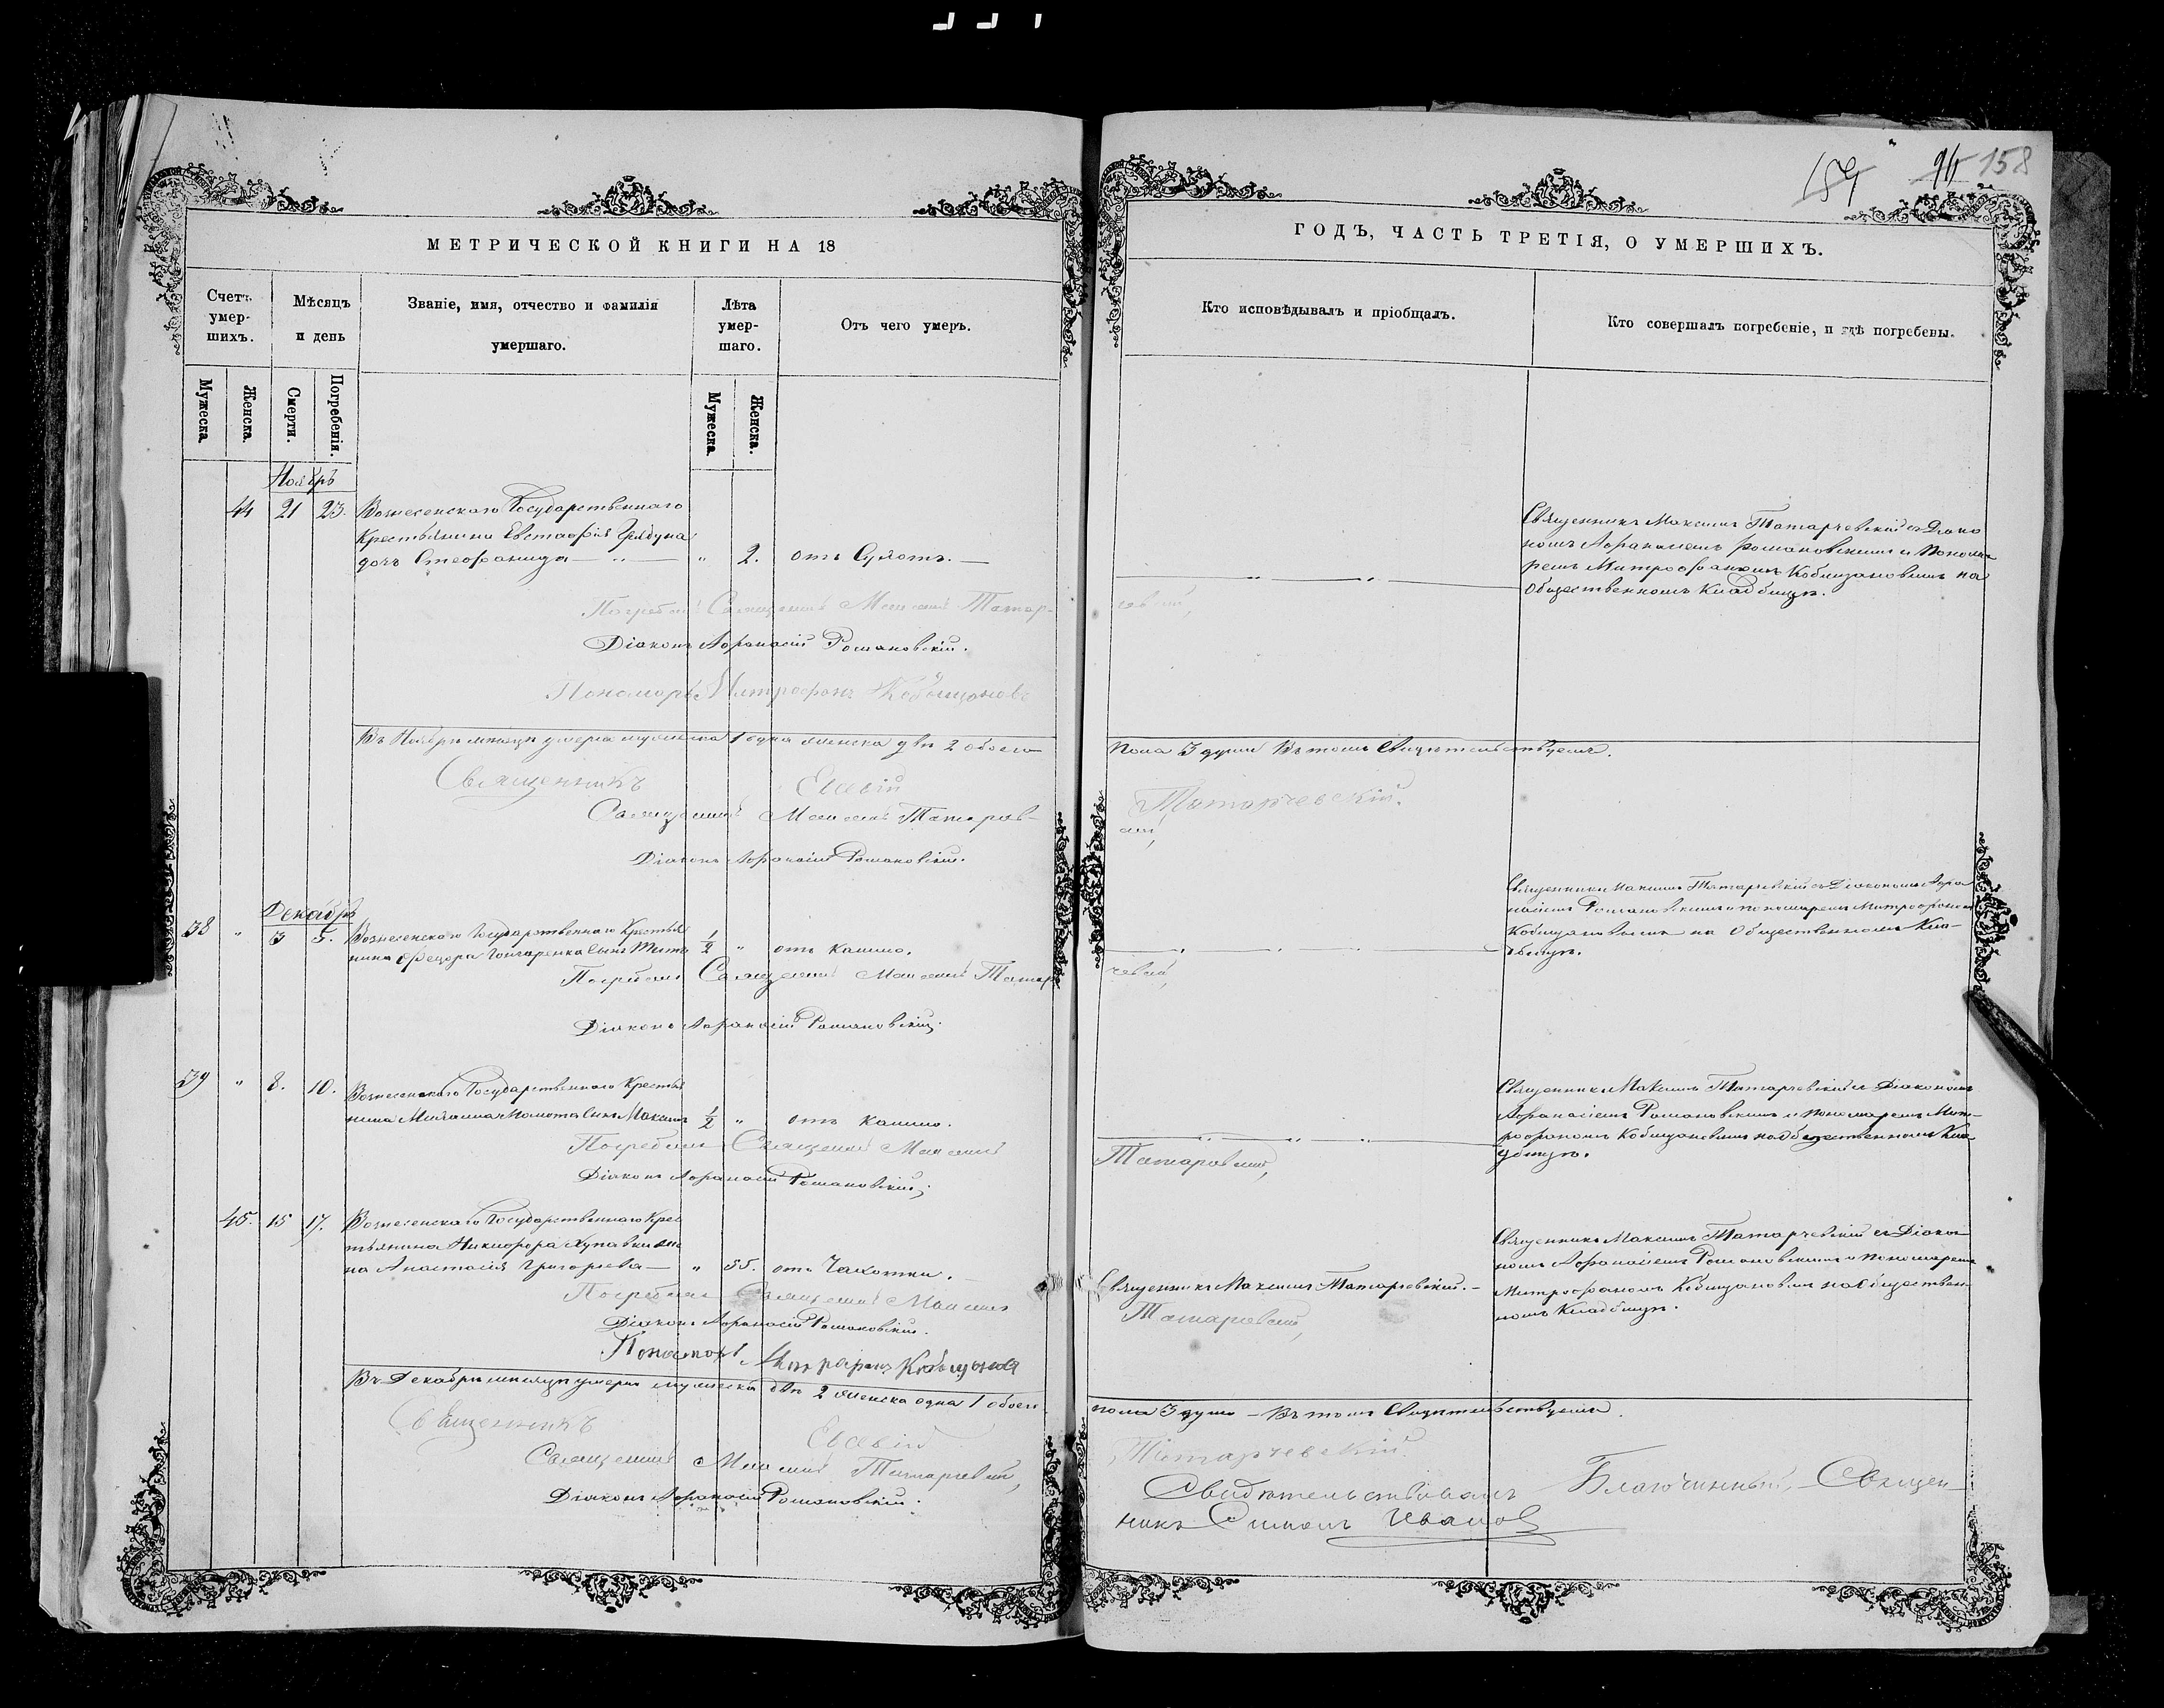 159 96 158
МЕТРИЧЕСКОЙ КНИГИ НА 18
ГОДЪ, ЧАСТЬ ТРЕТІЯ, О УМЕРШИХЪ.
Счетъ умер- шихъ.
Мѣсяцъ и день
Званіе, имя, отчество и фамилія умершаго.
Лѣта умер- шаго.
Отъ чего умеръ.
Кто исповѣдывалъ и пріобщалъ.
Кто совершалъ погребеніе, и гдѣ погребены.
Мужеска
Женска.
Смерти.
Погребенія.
Мужеска
Женска.
Ноябрь
44 21 23. Вознесенскаго Государственнаго
Крестьянина Евстафія
дочь Стефанида — " — " 2. отъ Сухотъ. —
Священникъ Максимъ Татарчевскій съ Діако
номъ Афанасіемъ Романовскимъ и Понома
ремъ Митрофаномъ Кобыщановымъ на
Общественномъ Кладбищѣ.
Погребали Священникъ Максимъ Татар-
чевскій,
Діаконъ Афанасій Романовскій.
Пономарь Митрофанъ Кобыщановъ
Въ Ноябрѣ мѣсяцѣ умерло мужеска 1 одна женска двѣ 2 обоего
пола 3 души Въ томъ Свидѣтельствуемъ.
Священникъ Евсевій Татарчевскій.
Священникъ Максимъ Татарчев-
скій,
Діаконъ Афанасій Романовскій.
Декабрь
38 " 3 5. Вознесенскаго Государственнаго Крестья
нина Федора Гончаренка Сынъ 1/2 " отъ кашлю.
Священникъ Максимъ Татарчевскій съ Діакономъ Афа
насіемъ Романовскимъ и пономаремъ Митрофаномъ
Кобыщановымъ на Общественномъ Кла-
дбищѣ.
Погребали Священникъ Максимъ Татар
чевскій,
Діаконъ Афанасій Романовскій.
39 " 8. 10. Вознесенскаго Государственнаго Крестья
нина Сынъ Максимъ 1/2 " отъ кашлю.
Священникъ Максимъ Татарчевскій съ Діакономъ
Афанасіемъ Романовскимъ и пономаремъ Мит-
рофаномъ Кобыщановымъ на Общественномъ Кла
дбищѣ.
Погребали Священникъ Максимъ
Татарчевскій,
Діаконъ Афанасій Романовскій.
45. 15 17. Вознесенскаго Государственнаго Крес
тьянина Никифора Хупавки же
на Анастасія Григорьева — " 55. отъ Чахотки. —
Священникъ Максимъ Татарчевскій. —
Священникъ Максимъ Татарчевскій съ Діако-
номъ Афанасіемъ Романовскимъ и пономаремъ
Митрофаномъ Кобыщановымъ на Обществен-
номъ Кладбищѣ.
Погребали Священникъ Максимъ
Татарчевскій,
Діаконъ Афанасій Романовскій.
Пономарь Митрофанъ Кобыщановъ
Въ Декабрѣ мѣсяцѣ умерло мужеска двѣ 2 женска одна 1 обоего
пола 3 души — Въ томъ Свидѣтельствуемъ.
Священникъ Евсевій Татарчевскій.
Священникъ Максимъ Татарчевскій,
Діаконъ Афанасій Романовскій.
Свидѣтельствовалъ Благочинный, Священ-
никъ Симеонъ Ивановъ